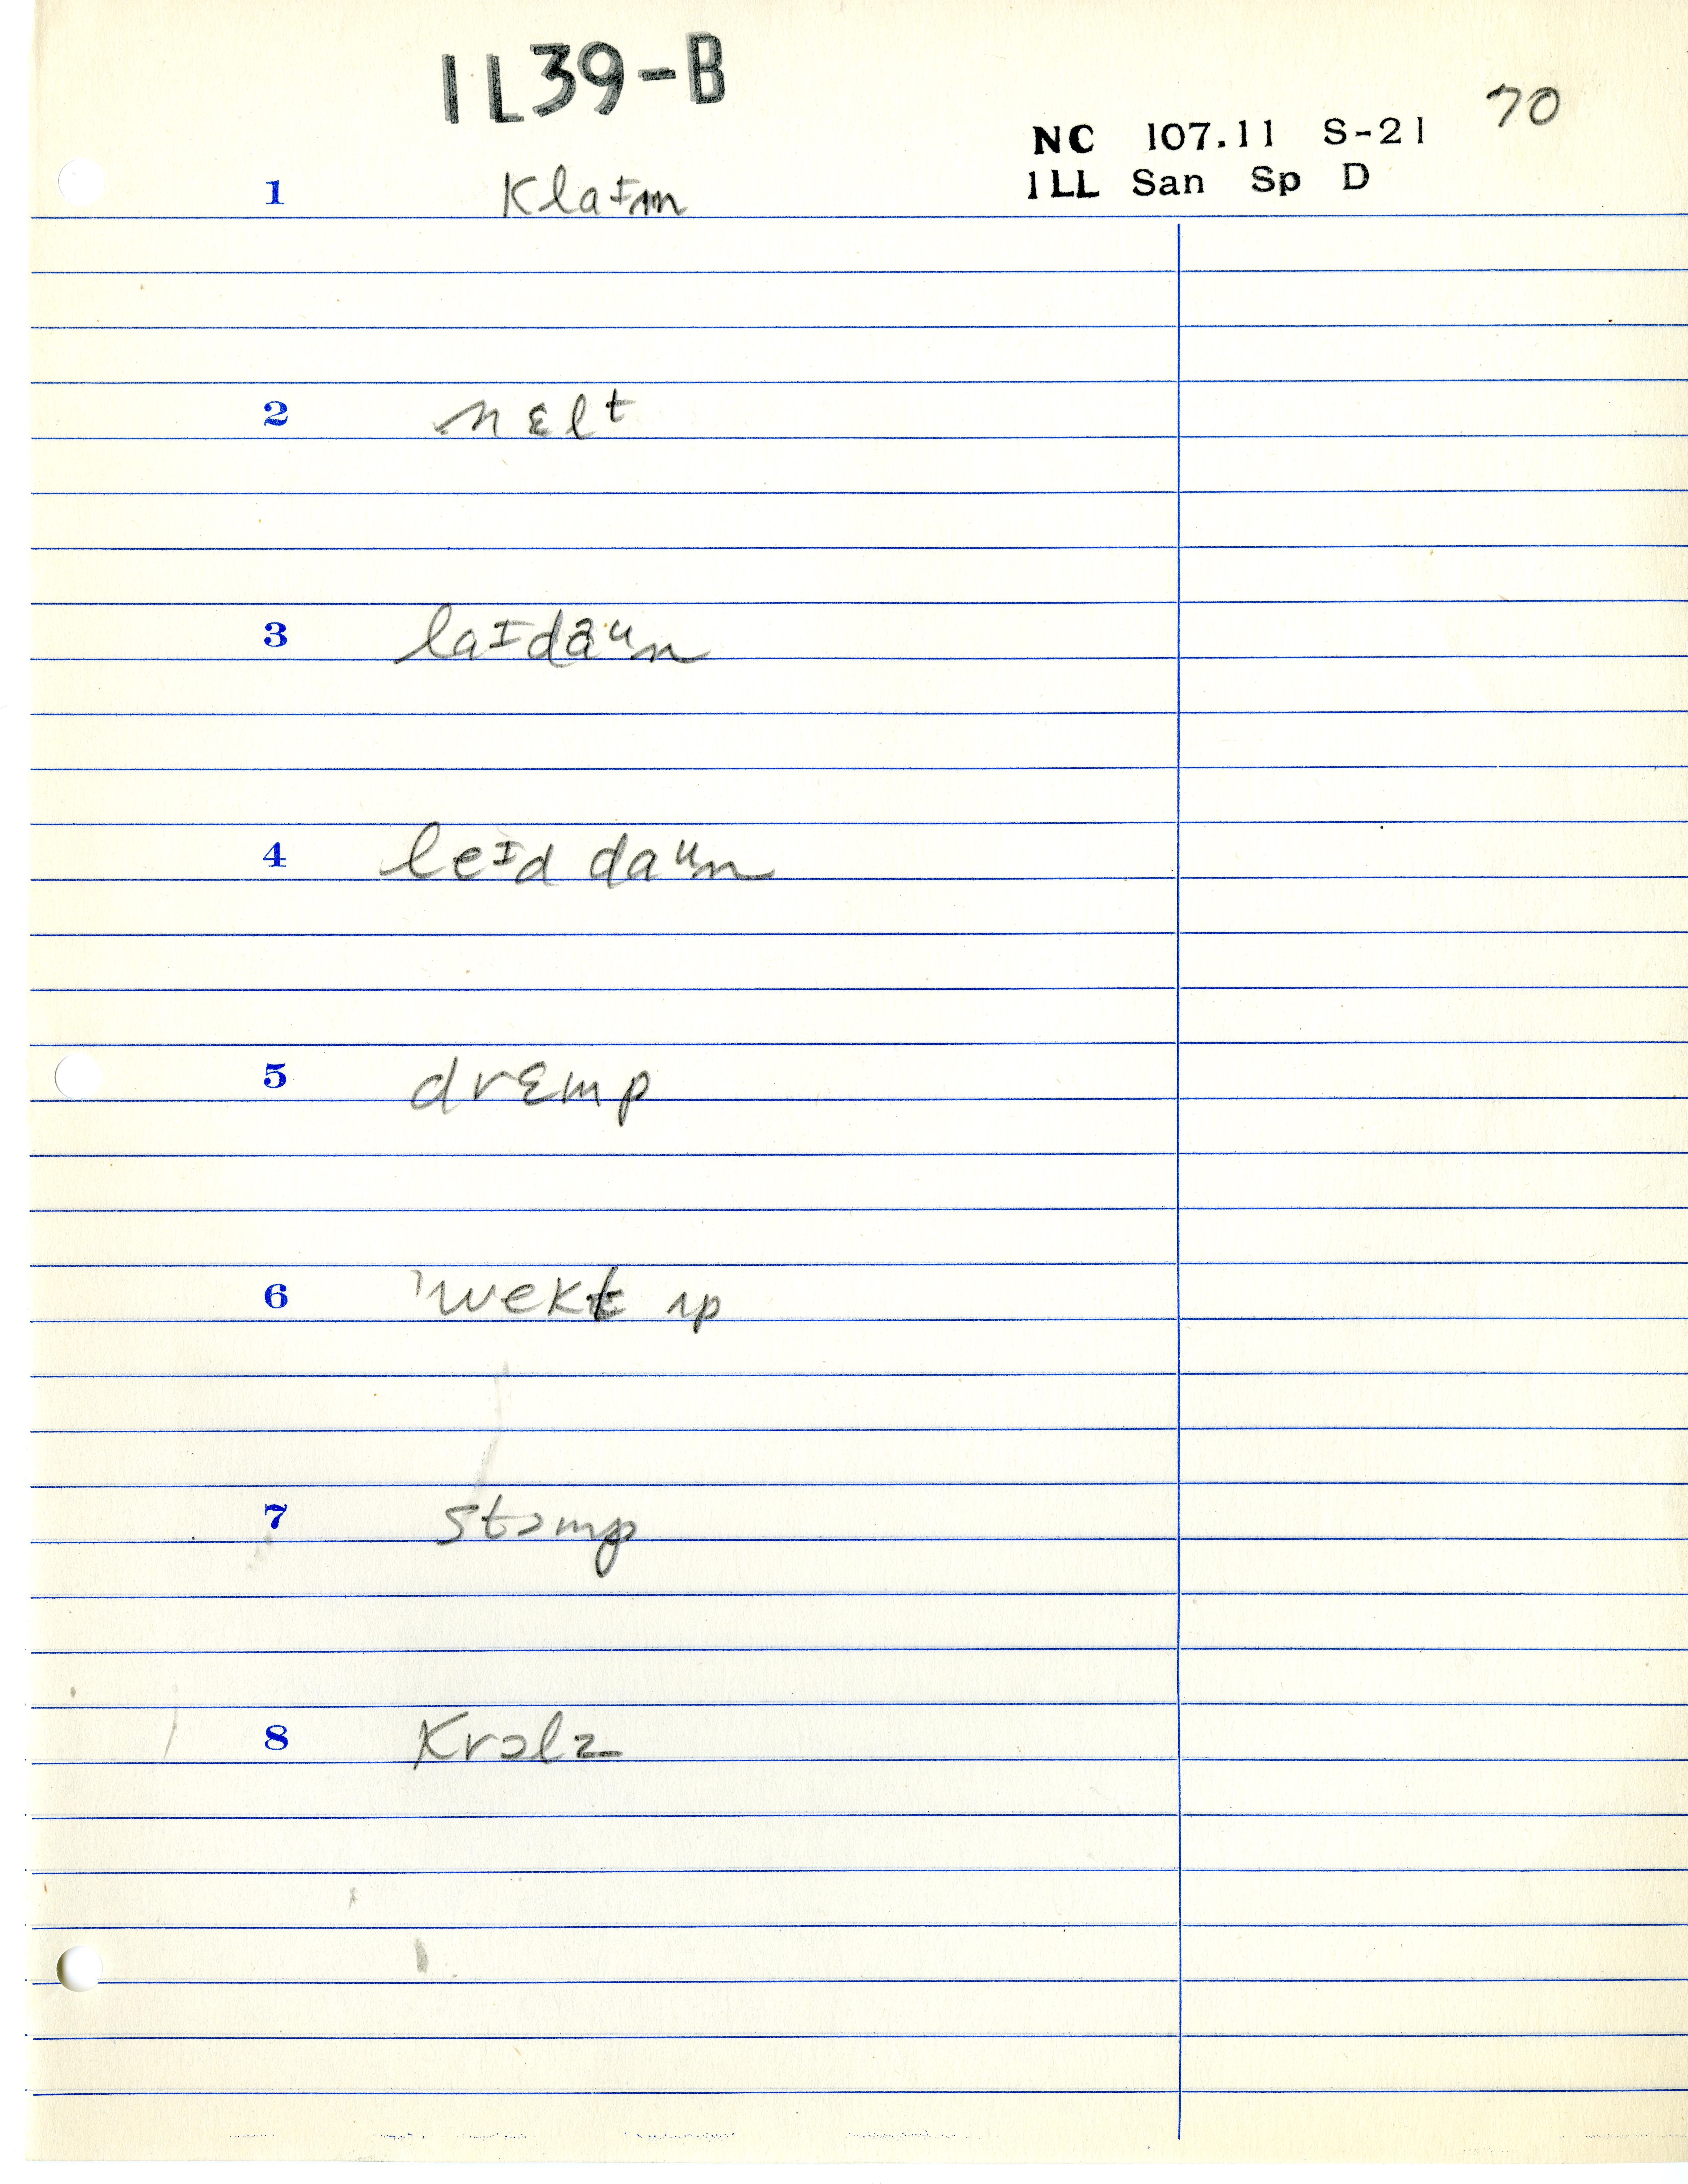 1L39-B
70
NC 107.11 S-21
1LL San Sp D
1 klaɪm
2 nɛlt
3 laɪdaun
4 leɪd daun
5 drɛmp
6 'wekt ʌp
7 stɔmp
8 krɔlz